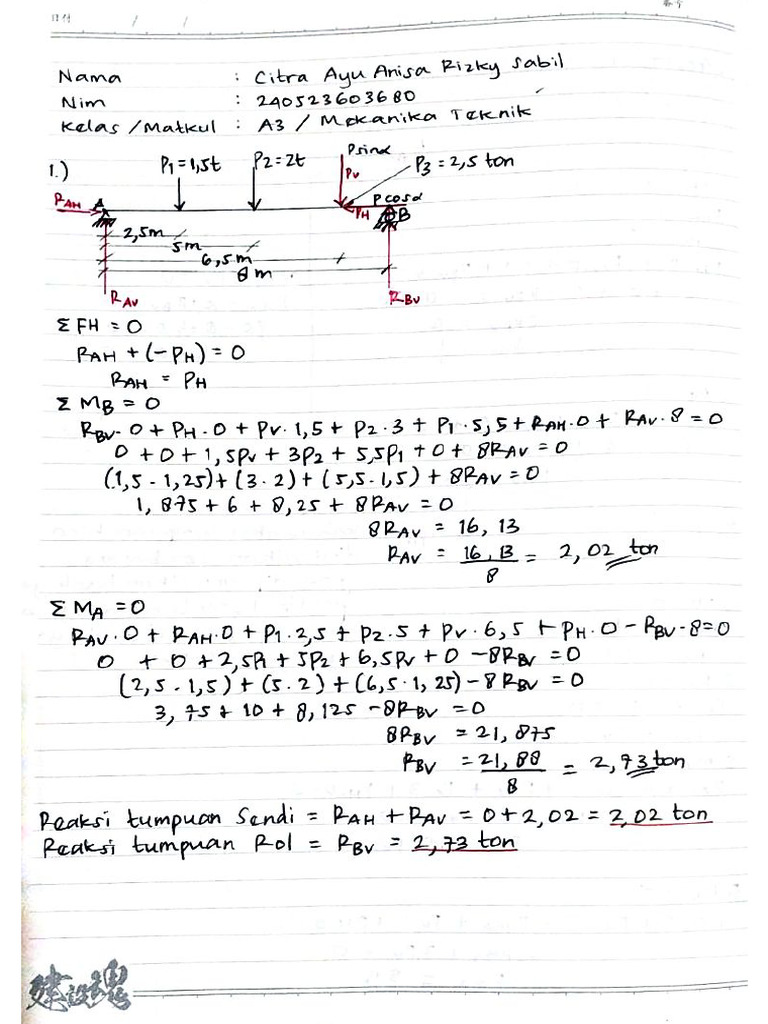 Nama : Citra Ayu Anisa Rizky Sabil
Nim : 240523603680
Kelas / Matkul : A3 / Mekanika Teknik
1.) P1 = 1,5t P2 = 2t Psinα Pv P3 = 2,5 ton
RAH A P cosα PH B
2,5m
5m
6,5m
8 m
RAV RBV
Σ FH = 0
RAH + (-PH) = 0
RAH = PH
Σ MB = 0
RBV · 0 + PH · 0 + PV · 1,5 + P2 · 3 + P1 · 5,5 + RAH · 0 + RAV · 8 = 0
0 + 0 + 1,5PV + 3P2 + 5,5P1 + 0 + 8RAV = 0
(1,5 · 1,25) + (3 · 2) + (5,5 · 1,5) + 8RAV = 0
1,875 + 6 + 8,25 + 8RAV = 0
8RAV = 16,13
RAV = 16,13 = 2,02 ton
8
Σ MA = 0
RAV · 0 + RAH · 0 + P1 · 2,5 + P2 · 5 + PV · 6,5 + PH · 0 - RBV · 8 = 0
0 + 0 + 2,5P1 + 5P2 + 6,5PV + 0 - 8RBV = 0
(2,5 · 1,5) + (5 · 2) + (6,5 · 1,25) - 8RBV = 0
3,75 + 10 + 8,125 - 8RBV = 0
8RBV = 21,875
RBV = 21,88 = 2,73 ton
8
Reaksi tumpuan Sendi = RAH + RAV = 0 + 2,02 = 2,02 ton
Reaksi tumpuan Rol = RBV = 2,73 ton